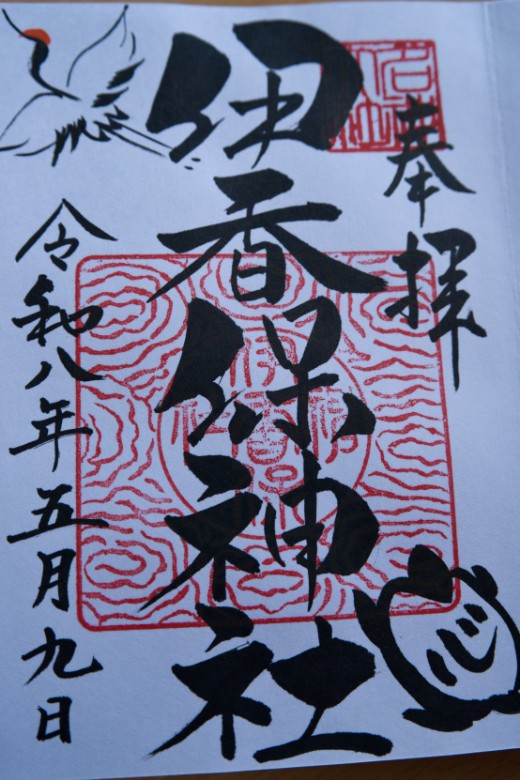 奉拝
伊香保神社
令和八年五月九日
心